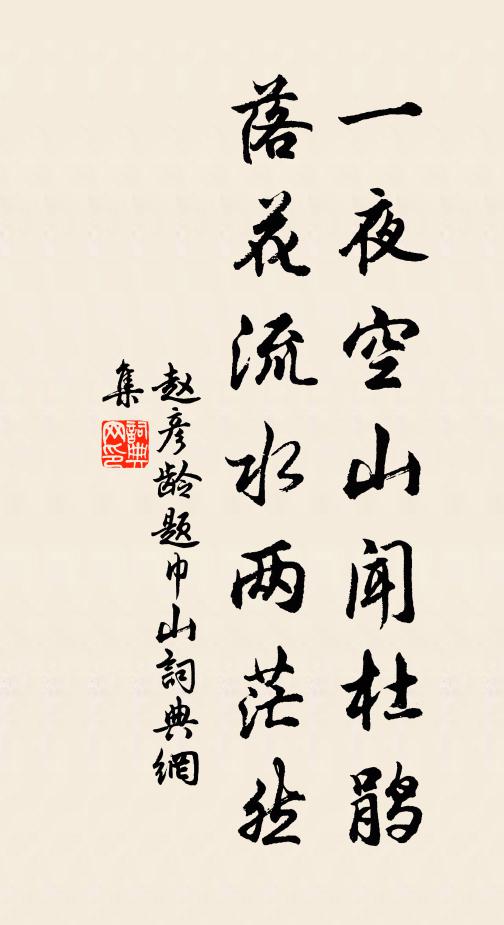 一夜空山闻杜鹃
落花流水两茫然
赵彦龄题巾山詞典網
集
詞典
网印